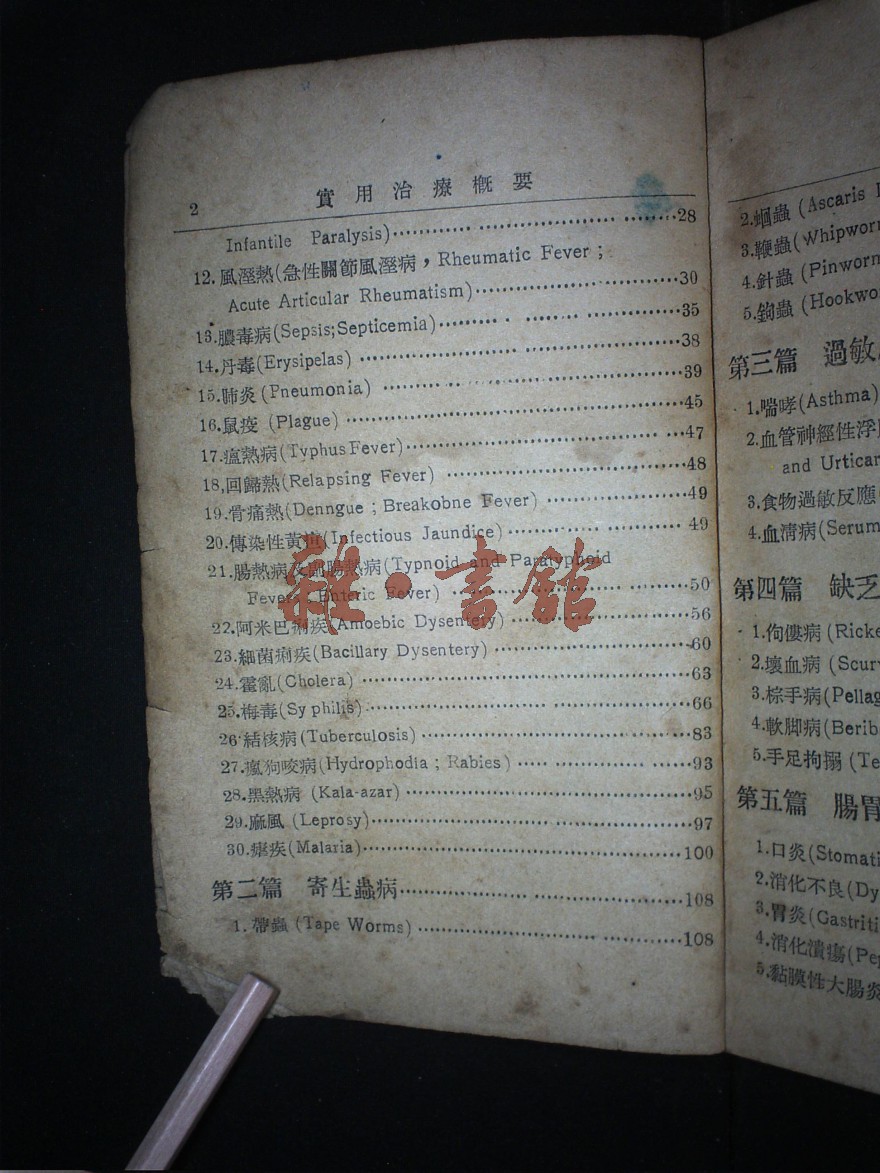 2 實用治療概要
Infantile Paralysis)··················28
12.風溼熱(急性關節風溼病，Rheumatic Fever ;
Acute Articular Rheumatism)··················30
13.膿毒病(Sepsis;Septicemia)··················35
14.丹毒(Erysipelas) ··················38
15.肺炎(Pneumonia) ··················39
16.鼠疫 (Plague) ··················45
17.瘟熱病(TyphusFever)··················47
18,回歸熱(Relapsing Fever) ··················48
19.骨痛熱(Denngue ; Breakobne Fever) ··················49
20.傳染性黃疸(Infectious Jaundice)·················· 49
21.腸熱病及副腸熱病(Typnoid and Paratyphoid
Fevers ; Enteric Fever) ··················50
22.阿米巴痢疾(Amoebic Dysentety)··················56
23.細菌痢疾(Bacillary Dysentery) ··················60
24.霍亂(Cholera) ··················63
25.梅毒(Sy philis)··················66
26·結核病(Tuberculosis) ··················83
27.瘋狗咬病(Hydrophodia ; Rabies) ··················93
28.黑熱病 (Kala-azar) ··················95
29.痲風 (Leprosy)··················97
30.瘧疾(Malaria)··················100
第二篇 寄生蟲病··················108
1.帶蟲 (Tape Worms) ··················108
雜·書館
2.蛔蟲 (Ascaris
3.鞭蟲(Whipworn
4.針蟲 (Pinworn
5.鉤蟲 (Hookwo
第三篇 過敏
1.喘哮(Asthma)
2.血管神經性浮
and Urticar
3.食物過敏反應
4.血清病(Serum
第四篇 缺乏
1.佝僂病 (Ricke
2.壞血病 (Scur
3.棕手病(Pellag
4.軟脚病(Berib
5.手足拘搦 (Te
第五篇 腸胃
1.口炎(Stomati
2.消化不良(Dy
3.胃炎(Gastriti
4.消化潰瘍(Pe
5.黏膜性大腸炎